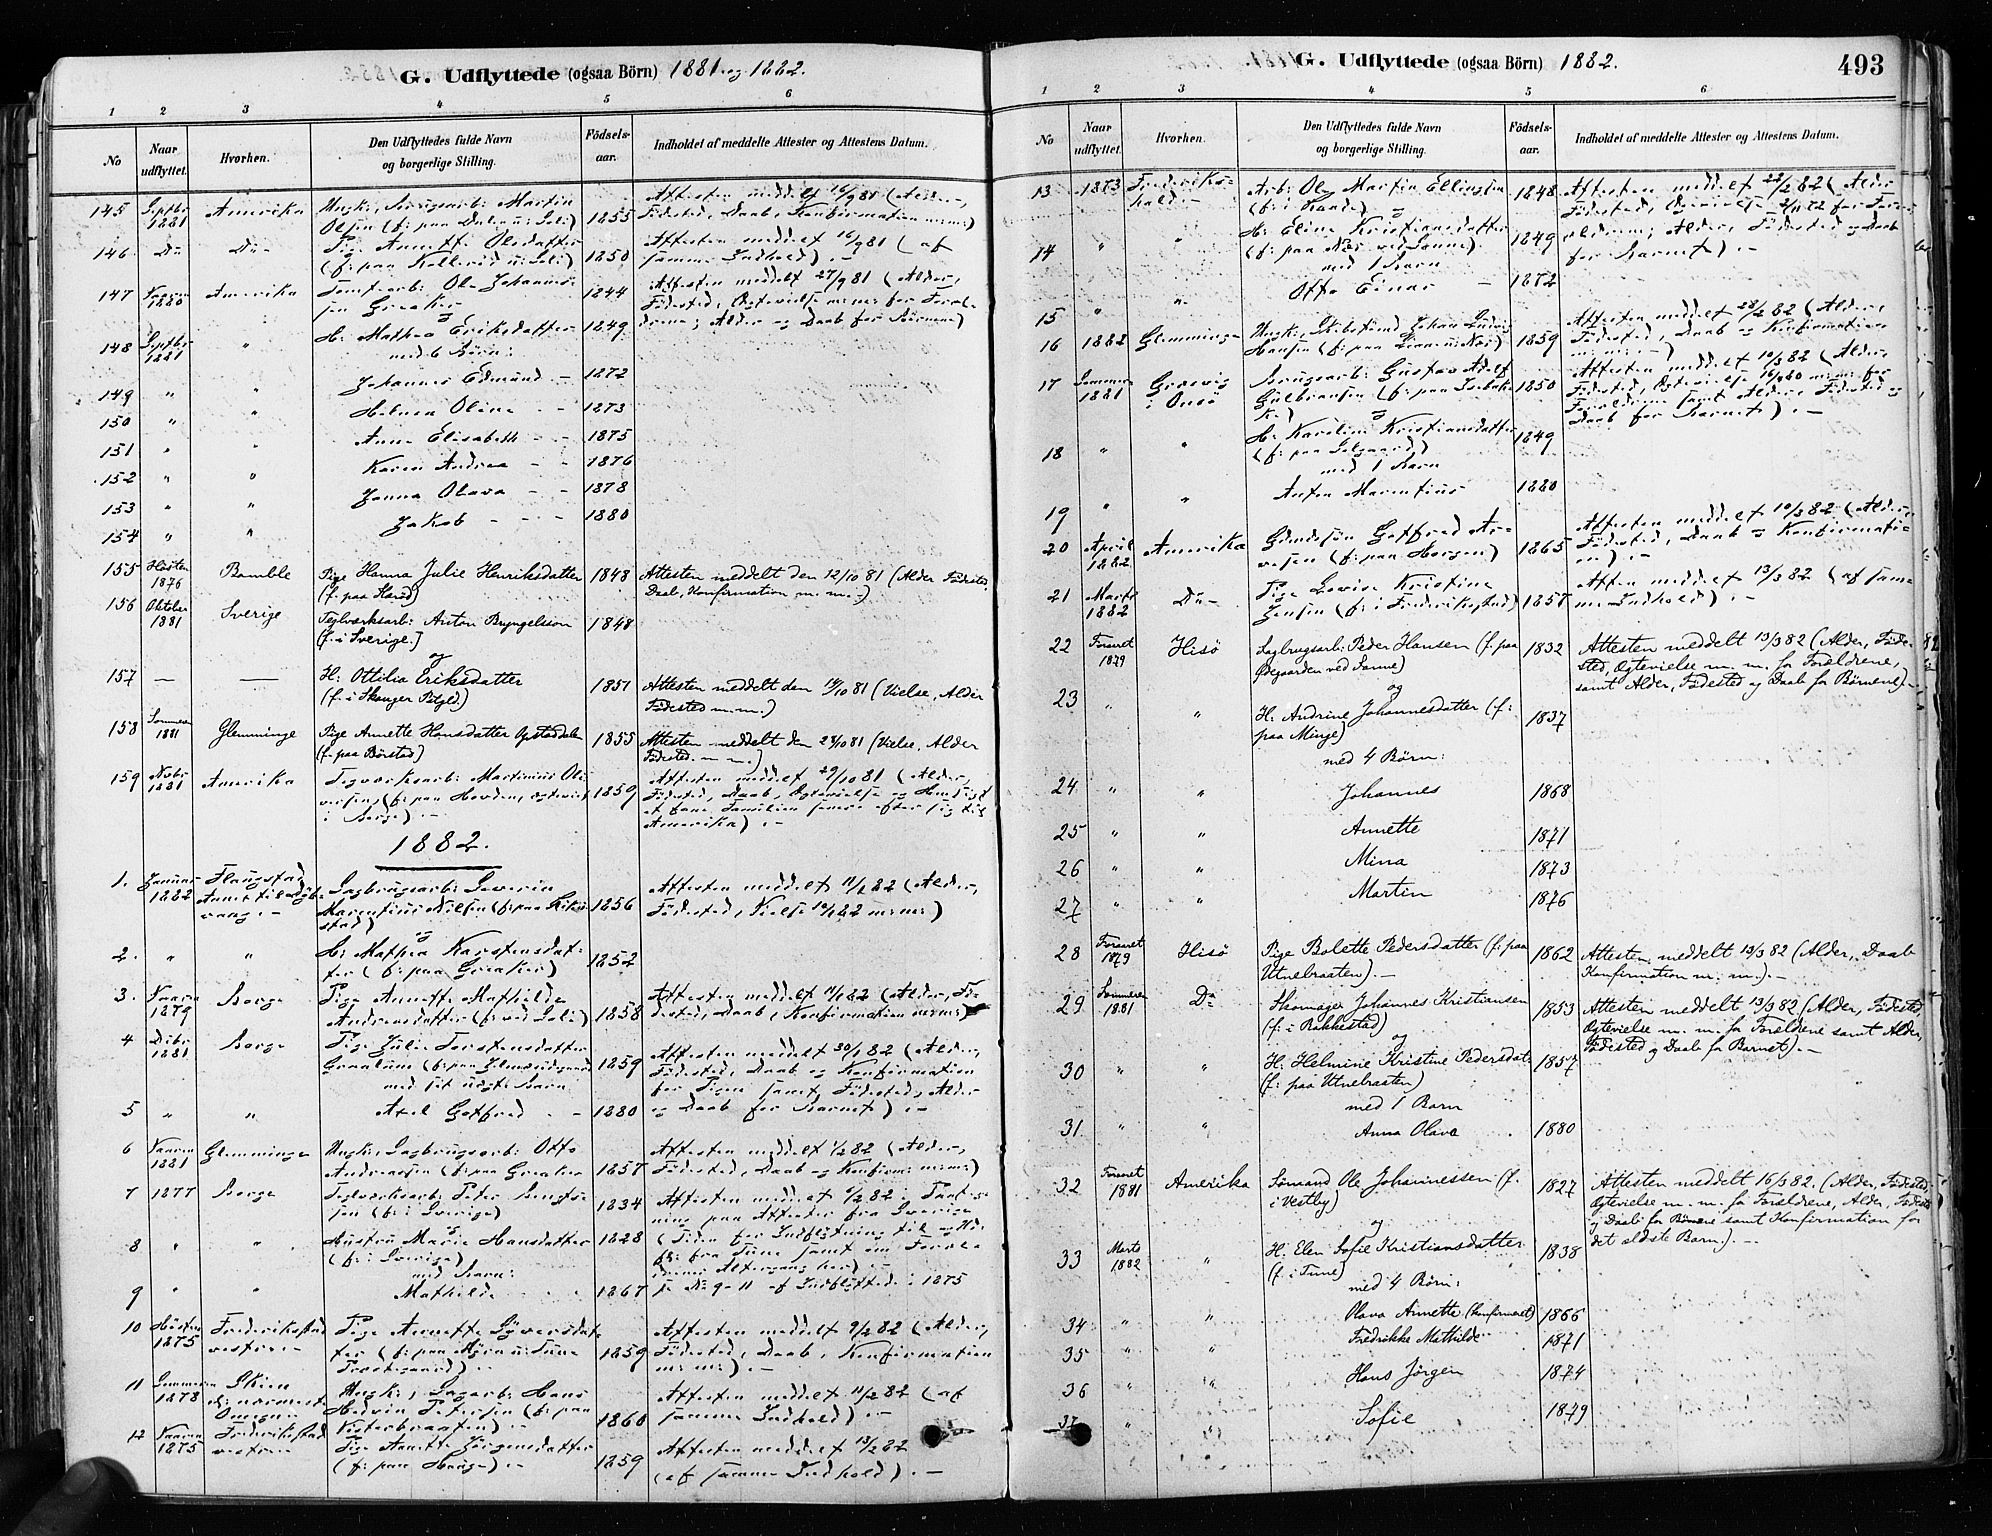 G. Udflyttede (ogsaa Börn) 1881 og 1882.
1 2 3 4 5 6
No
Naar udflyttet.
Hvorhen.
Den Udflyttedes fulde Navn
og borgerlige Stilling.
Födsels-
aar.
Indholdet af meddelte Attester og Attestens Datum.
145 Septbr 1881 Amerika Ungk., Brugsarb: Martin 1855 Attesten meddelt 16/9 81 (Alder,
Olsen (f: paa Dalen u: Soli) Födested, Daab, Konfirmation m: m:)
146 Do Do- Pige Annette Olsdatter 1850 Attesten meddelt 16/9 81 (af
(f: paa Kollerød u: Soli) samme Indhold). -
147 Vaaren 1880 Amerika Tomtearb: Ole Johannes- 1844 Attesten meddelt 27/9 81 (Alder,
sen Greaker Födested, Egtevielse m: m: for Foræl-
og drene; Alder og Daab for Börnene)
148 Septbr 1881 " H: Mathea Eriksdatter 1849
med 6 Börn:
149 " " Johannes Edmund - 1872
150 " " Helmea Oline - - 1873
151 " " Anne Elisabeth - - 1875
152 " " Karen Andrea - - 1876
153 " " Janna Olava - - 1878
154 " " Jakob - - - 1880
155 Hösten 1876 Bamble Pige Hanna Julie Henriksdatter 1848 Attesten meddelt den 12/10 81 (Alder Födested,
Daab, Konfirmation m. m.-)
156 Oktober 1881 Sverige Teglværksarb: Anton Bryngelsson 1848
(f. i Sverige.)
og
157 — — H: Ottilia Eriksdatter 1851 Attesten meddelt den 14/10 81 (Vielse, Alder
(f. i Skauger Pstgld.) Födested m. m.)
158 Sommeren 1881 Glemminge Pige Annette Hansdatter Opstaddalen 1855 Attesten meddelt den 28/10 81 (Vielse, Alder
(f. paa Börstad) Födested. m. m.)
159 Novbr 1881 Amerika Tegværksarb: Martinius Oli- 1859 Attesten meddelt 29/10 81 (Alder,
versen, (f: paa Hovden, egteviet Födested, Daab, Egtevielse og Hensigt
i Borge). - at have Familien senere efter sig til
Amerika). -
1882.
1. Januar 1882 Haugstad Annex til Rödt- vaag. - Sagbrugsarb: Severin 1856 Attesten meddelt 11/1 82 (Alder,
Marentius Nilsen (f: paa Födested, Vielse 10/1 82 m: m:)
og
2. " " H: Mathea Karstensdat- 1852
ter (f: paa Greaker)
3. Vaaren 1879 Borge Pige Annette Mathilde 1858 Attesten meddelt 11/1 82 (Alder, Fö-
Andreasdatter (f: ved Soli) dested, Daab, Konfirmation m: m:)
4 Decbr 1881 Borge Pige Julie Torstensdatter 1859 Attesten meddelt 30/1 82 (Alder,
Graalum (f: paa Födested, Daab og Konfirmation
med sit uegt: Barn for Pigen samt Födested, Alder
5 " " Axel Gotfred - - 1880 og Daab for Barnet). -
6 Vaaren 1881 Glemminge Ungk., Sagbrugsarb: Otto 1857 Attesten meddelt 1/2 82 (Alder,
Andreassen (f: paa Greaker Födested, Daab og Konfirm: m: m:)
7 1877 Borge Teglverksarb: Peter Bengts- 1834 Attesten meddelt 6/2 82 i Paateg-
sen (f: i Sverige) ning paa Attester fra Sverige
og (Tiden for Indflytning til og Ud-
8 " " Hustru Marie Hansdatter 1828 fl: fra Tune samt om Foræl-
(f: i Sverige) drenes Altergang her). -
med Barn:
9 " " Mathilde - - 1867 se No 9-11 af Indflyttede i 1875
10 Hösten 1875 Frederikstad vestre. - Pige Annette Syversdat- 1859 Attesten meddelt 9/2 82 (Alder,
ter (f: paa Mörn u: Tune Födested, Daab, Konfirmation
Prestegaard). - m: m:). -
11 Sommeren 1878 Skien eller nærmeste Omegn Ungk:, Sagarb: Hans 1860 Attesten meddelt 11/2 82 (af
Hedvin Petersen (f: paa samme Indhold). -
Visterbraaten). -
12 Vaaren 1875 Frederikstad vestre - Pige Anette Jörgensdatter 1859 Attesten meddelt 13/2 82
(f: paa Hauge). - (af samme Indhold). -
G. Udflyttede (ogsaa Börn) 1882.
493
1 2 3 4 5 6
No
Naar udflyttet.
Hvorhen.
Den Udflyttedes fulde Navn
og borgerlige Stilling.
Födsels-
aar.
Indholdet af meddelte Attester og Attestens Datum.
13 1873 Frederiks- hald. - Arb: Ole Martin Ellingsen 1848 Attesten meddelt 22/2 82 (Alder
(f: i Raade) og Födested, Egtevielse 2/11 72 for Foræ-
14 " " H: Eline Kristiansdatter 1849 ldrene; Alder, Födested og Daab
(f: paa Nær ved Sanne) for Barnet). -
med 1 Barn
15 " " Otto Einar - 1872
16 1882 Glemminge Ungk:, Johan Ludvig 1859 Attesten meddelt 28/2 82 (Alder,
Hansen (f: paa Födested, Daab og Konfirmation
m: m: -)
17 Sommeren 1881 Gresvig i Onsö Brugsarb: Gustav Adolf 1850 Attesten meddelt 10/3 82 (Alder,
Gulbransen (f: paa Isebak- Födested, Egtevielse 16/9 80 m: m: for
ke) og Forældrene samt Alder, Födested og
18 " " H: Karoline Kristiansdatter 1849 Daab for Barnet). -
(f: paa Solgaard)
med 1 Barn
19 " " Anton Marentius 1880
20 April 1882 Amerika Gaardssön Gotfred Ar- 1865 Attesten meddelt 10/3 82 (Alder,
vesen (f: paa Horgen) Födested, Daab og Konfirmatio-
n). -
21 Marts 1882 Do- Pige Lovise Kristine 1857 Attesten meddelt 13/3 82 (af sam-
Jensen (f: i Frederikstad) me Indhold). -
22 Foraaret 1879 Hisö Sagbrugsarb: Peder Hansen (f: paa 1832 Attesten meddelt 13/3 82 (Alder, Föde-
Ødegaarden ved Sanne) sted, Egtevielse m. m. for Forældrene,
og samt Alder, Födested og Daab for Börnene). -
23 " " H: Andrine Johannesdatter (f: 1837
paa Minge)
med 4 Börn:
24 " " Johannes 1868
25 " " Annette 1871
26 " " Mina 1873
27 " " Martin 1876
28 Foraaret 1879 Hisö Pige Bolette Pedersdatter (f: paa 1862 Attesten meddelt 13/3 82 (Alder, Daab
Utnebraaten). - Konfirmation m. m.). -
29 Sommeren 1881 Do Skomager Johannes Kristiansen 1853 Attesten meddelt 13/3 82 (Alder, Födested,
(f: i Rakkestad) Egtevielse m. m. for Forældrene samt Alder,
og Födested og Daab for Barnet). -
30 " " H: Helmine Kristine Pedersdat: 1857
(f: paa Utnebraaten)
med 1 Barn
31 " " Anna Olava . 1880
32 Foraaret 1881 Amerika Sömand Ole Johannessen (f. 1827 Attesten meddelt 16/3 82. (Alder, Födested
i Vestby) Egtevielse m. m. for Forældrene, Alder, Födested
og og Daab for Börnene samt Konfirmation for
33 Marts 1882 " H: Elen Sofie Kristiansdatter 1838 det ældste Barn). -
(f. i Tune)
med 4 Börn:
34 " " Olava Annette (konfirmeret) 1866
35 " " Fredrikke Mathilde 1871
36 " " Hans Jörgen 1874
37 " Sofie 1879